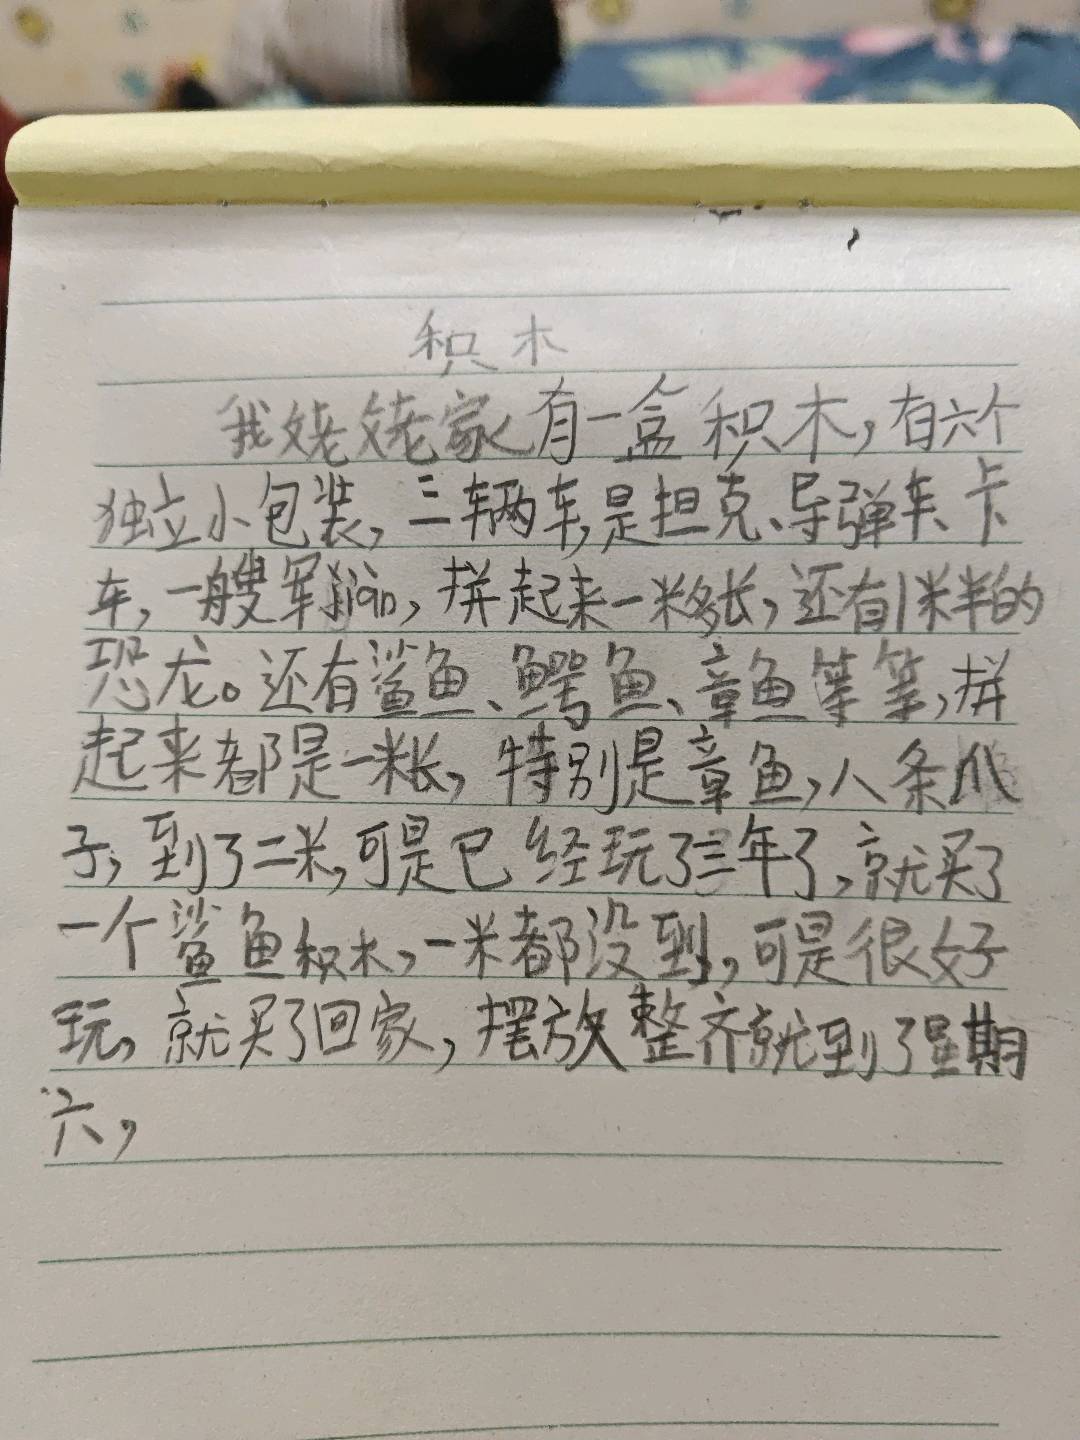 积木
我姥姥家有一盒积木，有六个
独立小包装，三辆车，是担克、导弹车、卡
车，一艘军jian，拼起来一米多长，还有1米半的
恐龙。还有鲨鱼、鳄鱼、章鱼等等，拼
起来都是一米长，特别是章鱼，八条爪
子，到了二米，可是已经玩了三年了，就买了
一个鲨鱼积木，一米都没到，可是很好
玩，就买了回家，摆放整齐就到了星期
六，